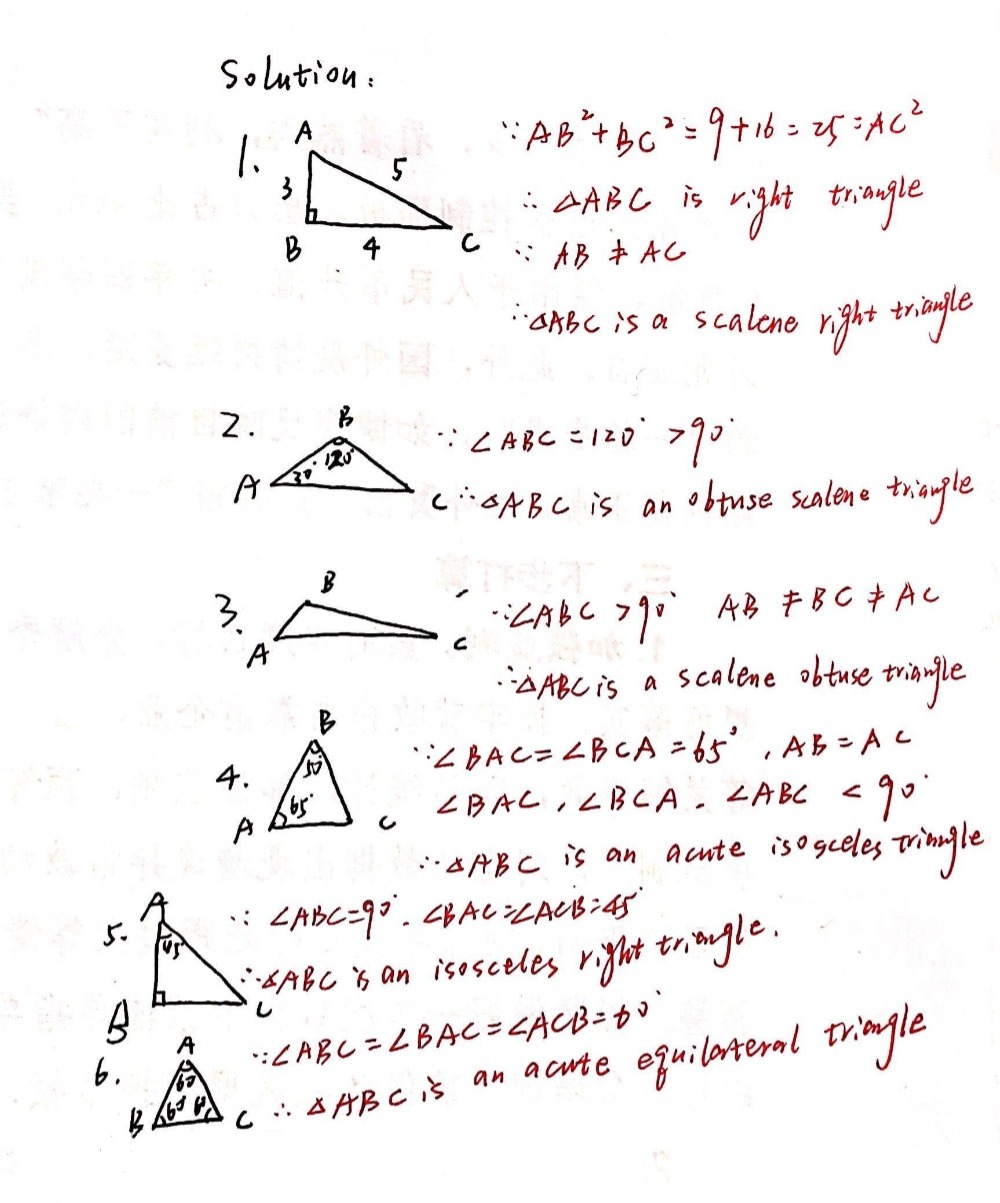 Solution:
1.
A
3
5
B
4
C
∵ AB²+BC²=9+16=25=AC²
∴ △ABC is right triangle
∵ AB ≠ AC
∵△ABC is a scalene right triangle
2.
B
30° 120°
A
C
∵ ∠ABC=120°>90°
∴△ABC is an obtuse scalene triangle
3.
B
A
C
∵∠ABC>90° AB≠BC≠AC
∴△ABC is a scalene obtuse triangle
4.
B
50°
65°
A
C
∵∠BAC=∠BCA=65°, AB=AC
∠BAC, ∠BCA, ∠ABC < 90°
∴△ABC is an acute isosceles triangle
5.
A
45°
B
C
∵ ∠ABC=90°. ∠BAC=∠ACB=45°
∴△ABC is an isosceles right triangle.
6.
A
60°
B
60°
C
∵∠ABC=∠BAC=∠ACB=60°
∴ △ABC is an acute equilateral triangle